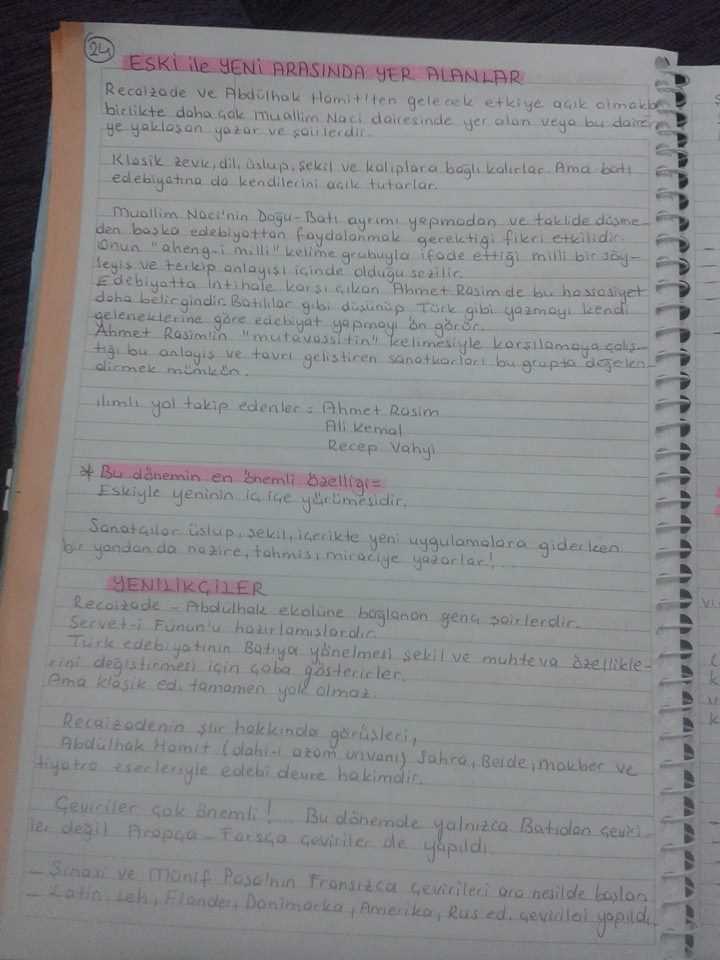 24
ESKİ ile YENİ ARASINDA YER ALANLAR
Recaizade ve Abdülhak Hamit'ten gelecek etkiye açık olmakla
birlikte daha çok Muallim Naci dairesinde yer alan veya bu daire-
ye yaklaşan yazar ve şairlerdir.
Klasik zevk, dil, üslup, şekil ve kalıplara bağlı kalırlar. Ama batı
edebiyatına da kendilerini açık tutarlar.
Muallim Naci'nin Doğu-Batı ayrımı yapmadan ve taklide düşme-
den başka edebiyattan faydalanmak gerektiği fikri etkilidir.
Onun "aheng-i milli" kelime grubuyla ifade ettiği milli bir söy-
leyiş ve terkip anlayışı içinde olduğu sezilir.
Edebiyatta intihale karşı çıkan Ahmet Rasim de bu hassasiyet
daha belirgindir. Batılılar gibi düşünüp Türk gibi yazmayı kendi
geleneklerine göre edebiyat yapmayı ön görür.
Ahmet Rasim'in "mutavassitin" kelimesiyle karşılamaya çalış-
tığı bu anlayış ve tavrı geliştiren sanatkarları bu grupta değerlen-
dirmek mümkün.
ılımlı yol takip edenler = Ahmet Rasim
Ali Kemal
Recep Vahyi
* Bu dönemin en önemli özelliği =
Eskiyle yeninin iç içe yürümesidir.
Sanatçılar üslup, şekil, içerikte yeni uygulamalara giderken
bir yandan da nazire, tahmis, miraciye yazarlar!...
YENİLİKÇİLER
Recaizade - Abdülhak ekolüne bağlanan genç şairlerdir.
Servet-i Fünun'u hazırlamışlardır.
Türk edebiyatının Batıya yönelmesi şekil ve muhteva özellikle-
rini değiştirmesi için çaba gösterirler.
Ama klasik ed. tamamen yok olmaz.
Recaizadenin şiir hakkında görüşleri,
Abdülhak Hamit (dahi-i azam unvanı) Sahra, Belde, makber ve
tiyatro eserleriyle edebi devre hakimdir.
Çeviriler çok önemli! Bu dönemde yalnızca Batıdan çeviri-
ler değil Arapça - Farsça çeviriler de yapıldı.
- Şinasi ve Münif Paşa'nın Fransızca çevirileri ara nesilde başlan
- Latin, Leh, Flander, Danimarka, Amerika, Rus ed. çevirileri yapıldı.